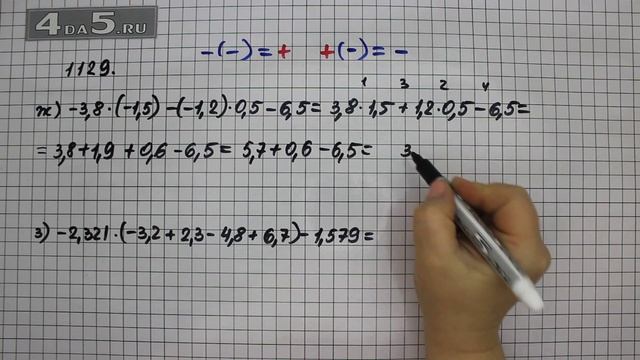 4DA5.RU
-(-) = + +(-) = -
1129.
1 3 2 4
ж) -3,8·(-1,5) -(-1,2)·0,5 - 6,5 = 3,8·1,5 + 1,2·0,5 - 6,5 =
= 3,8 + 1,9 + 0,6 - 6,5 = 5,7 + 0,6 - 6,5 = 3
з) -2,321·(-3,2 + 2,3 - 4,8 + 6,7) - 1,579 =